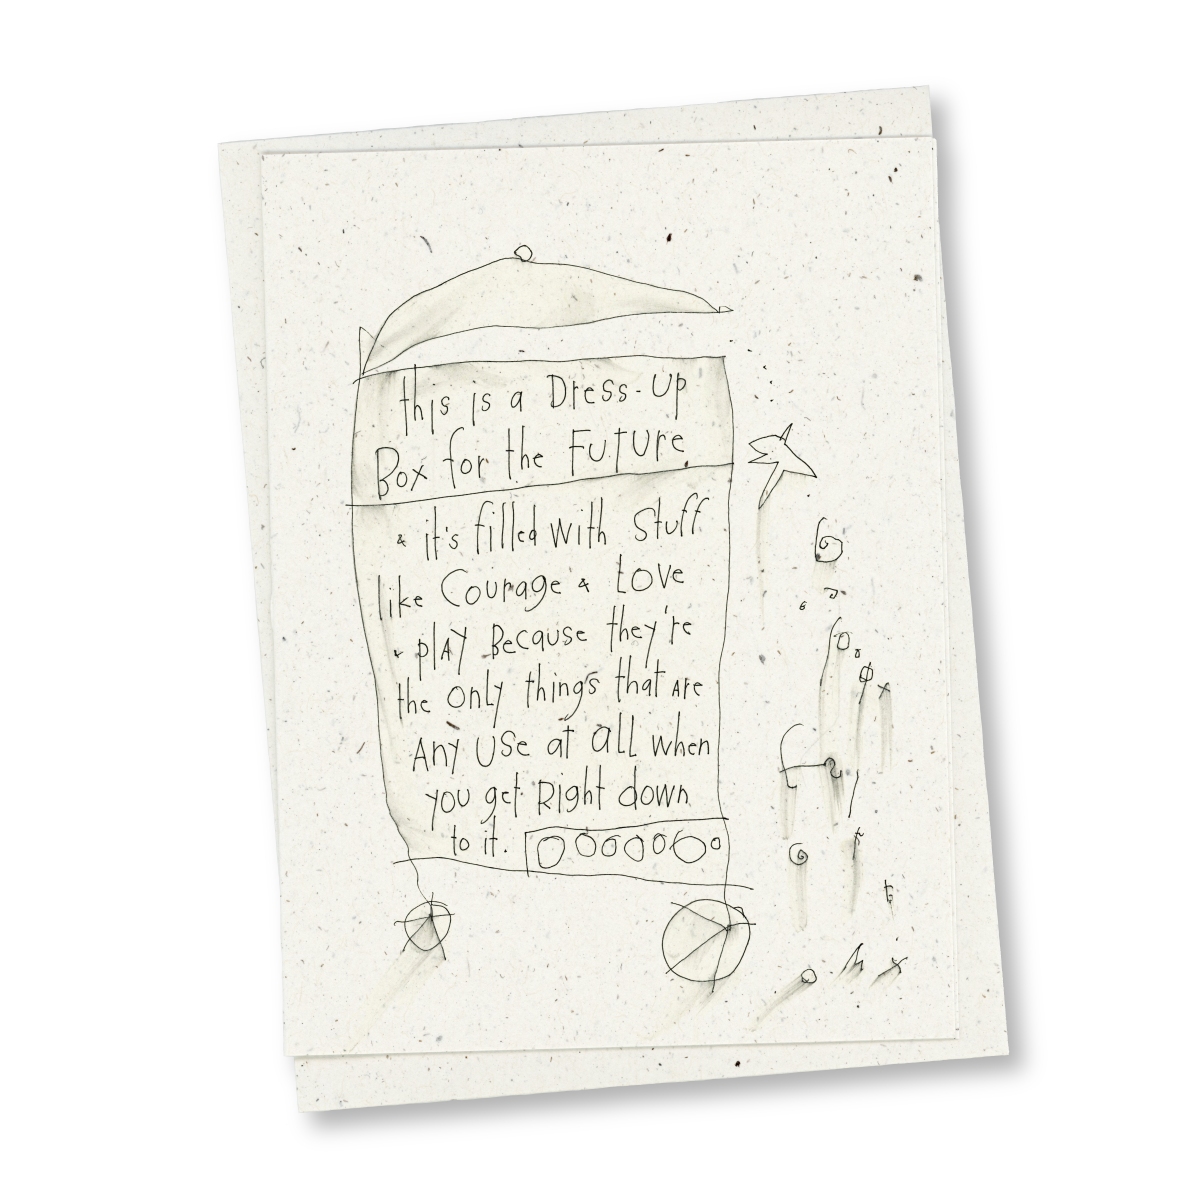 this is a Dress-Up
Box for the Future
& it's filled with Stuff
like Courage & Love
& plAy Because they're
the only things that Are
Any Use at all when
you get Right down
to it.